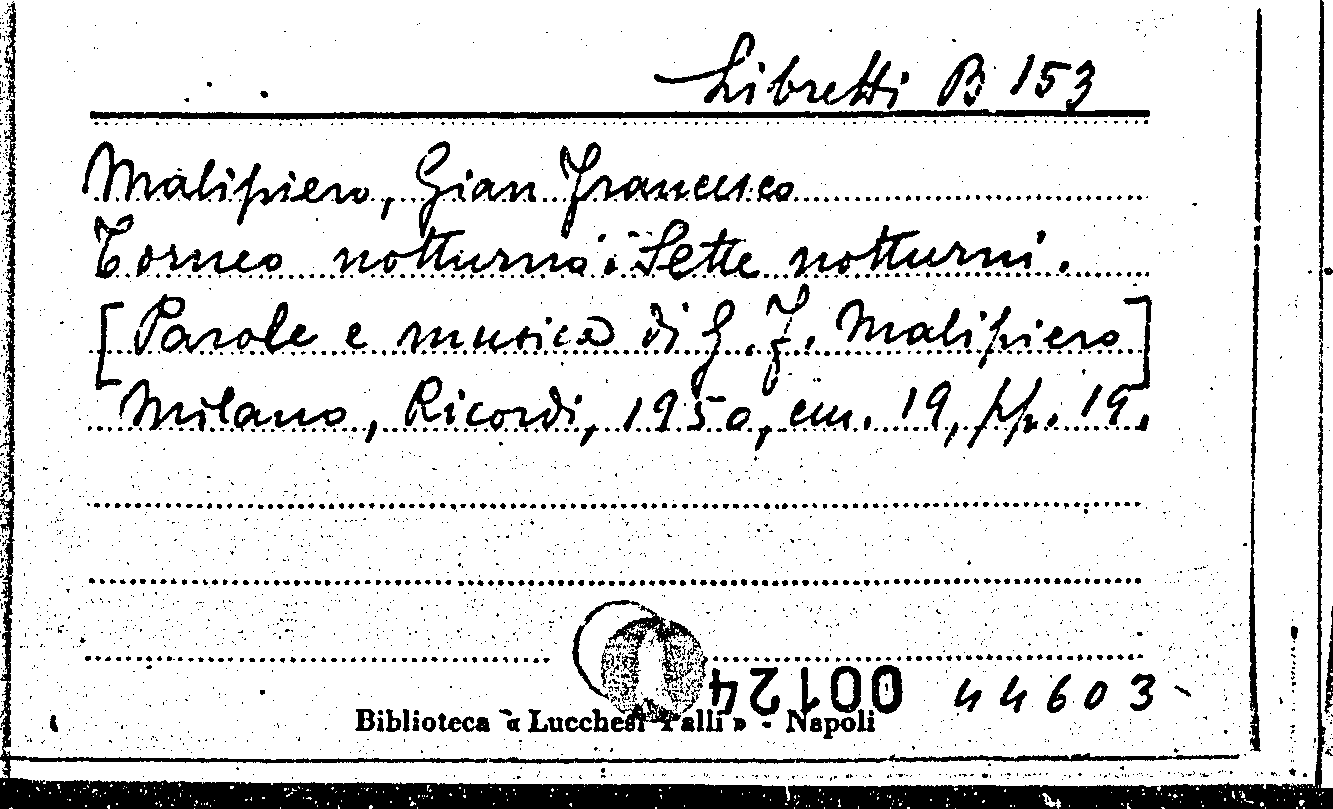 Libretti B 153
Malipiero, Gian Francesco
Torneo notturno: Sette notturni.
[Parole e musica di G. F. Malipiero]
Milano, Ricordi, 1950, cm. 19, pp. 19.
001124 44603
Biblioteca « Lucchesi Palli » - Napoli